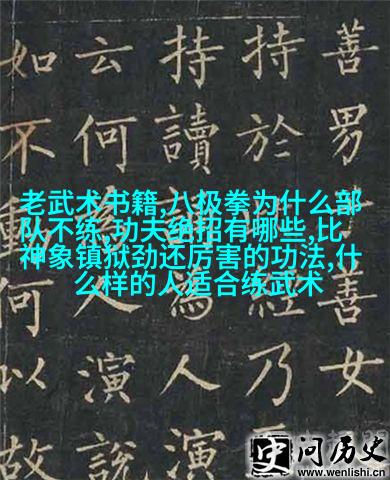 善男善女
持於經乃
持讀為人演
云何演說
如不動何以故
老武术书籍,八极拳为什么部
队不练,功夫绝招有哪些,比
神象镇狱劲还厉害的功法,什
么样的人适合练武术
史问历史
www.wenlishi.cn